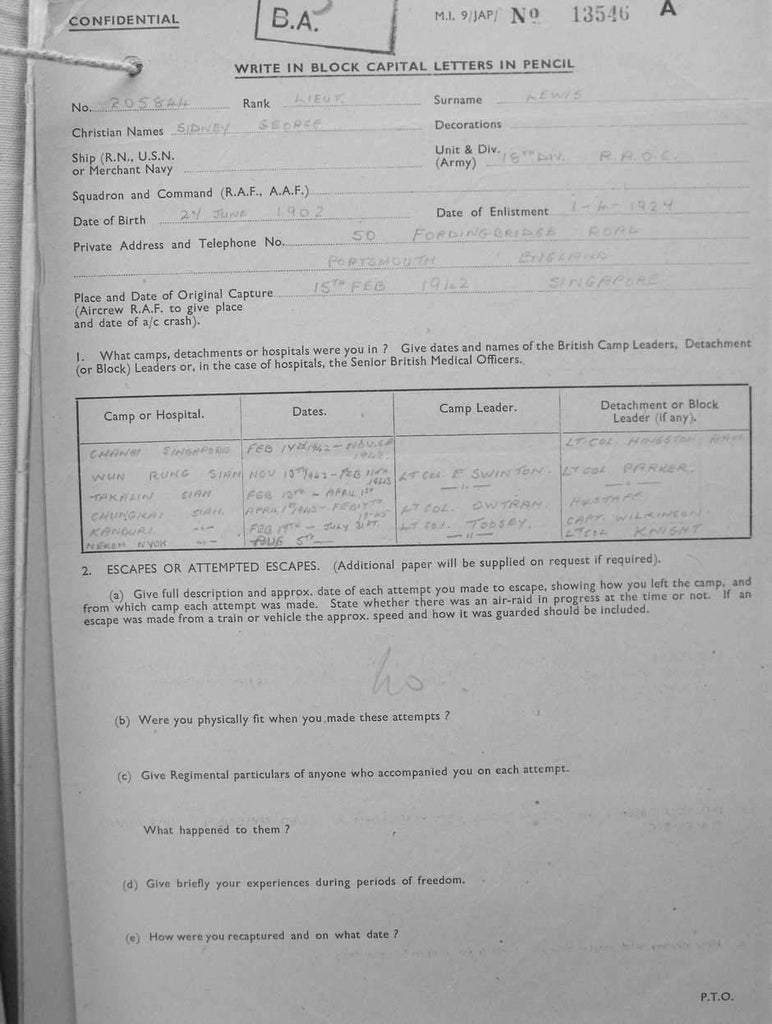 CONFIDENTIAL
B.A.
M.I. 9/JAP/ No 13546 A
WRITE IN BLOCK CAPITAL LETTERS IN PENCIL
No. 205844 Rank LIEUT. Surname LEWIS
Christian Names SIDNEY GEORGE Decorations
Ship (R.N., U.S.N. or Merchant Navy
Unit & Div. (Army) 18TH DIV. R.A.O.C.
Squadron and Command (R.A.F., A.A.F.)
Date of Birth JUNE 1902 Date of Enlistment 1-4-1924
Private Address and Telephone No. 50 FORDINGBRIDGE ROAD
PORTSMOUTH ENGLAND
Place and Date of Original Capture 15TH FEB 1942 SINGAPORE
(Aircrew R.A.F. to give place
and date of a/c crash).
1. What camps, detachments or hospitals were you in ? Give dates and names of the British Camp Leaders, Detachment
(or Block) Leaders or, in the case of hospitals, the Senior British Medical Officers.
Camp or Hospital. Dates. Camp Leader. Detachment or Block Leader (if any).
CHANGI SINGAPORE FEB 1942 - NOV. 1942. LT COL. HINGSTON
WUN RUNG SIAM NOV 13TH 1942 - FEB 1943 LT COL E SWINTON. LT COL PARKER.
TAKALIN SIAM FEB 13TH - APRIL 1ST — " — — " —
CHUNGKAI SIAM. APRIL 1ST 1943 - FEB 1945 LT COL. OWTRAM.
KANBURI — " — FEB 19TH - JULY 31ST. LT COL. TOOSEY. CAPT. WILKINSON.
NEKOM NYOK — " — AUG 5TH — — " — LT COL KNIGHT
2. ESCAPES OR ATTEMPTED ESCAPES. (Additional paper will be supplied on request if required).
(a) Give full description and approx. date of each attempt you made to escape, showing how you left the camp, and
from which camp each attempt was made. State whether there was an air-raid in progress at the time or not. If an
escape was made from a train or vehicle the approx. speed and how it was guarded should be included.
No.
(b) Were you physically fit when you made these attempts ?
(c) Give Regimental particulars of anyone who accompanied you on each attempt.
What happened to them ?
(d) Give briefly your experiences during periods of freedom.
(e) How were you recaptured and on what date ?
P.T.O.